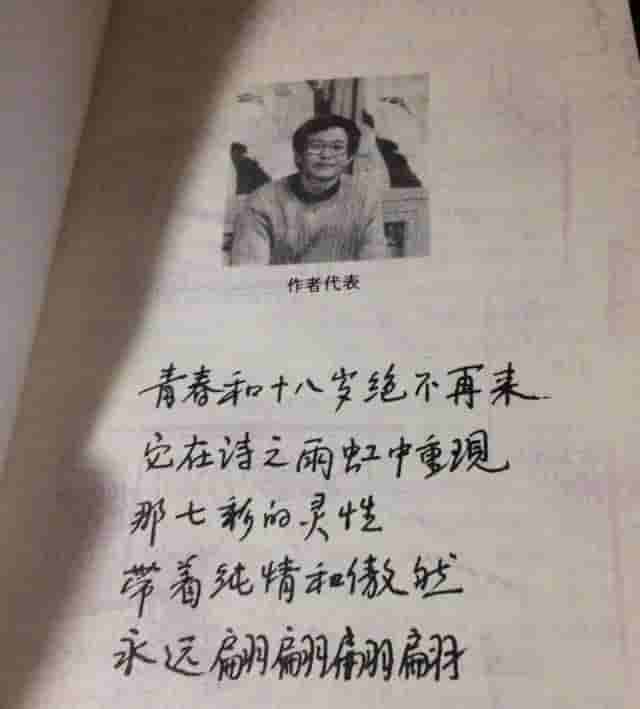 作者代表
青春和十八岁绝不再来
它在诗之雨虹中重現
那七彩的灵性
带着纯情和傲然
永远翩翩翩翩